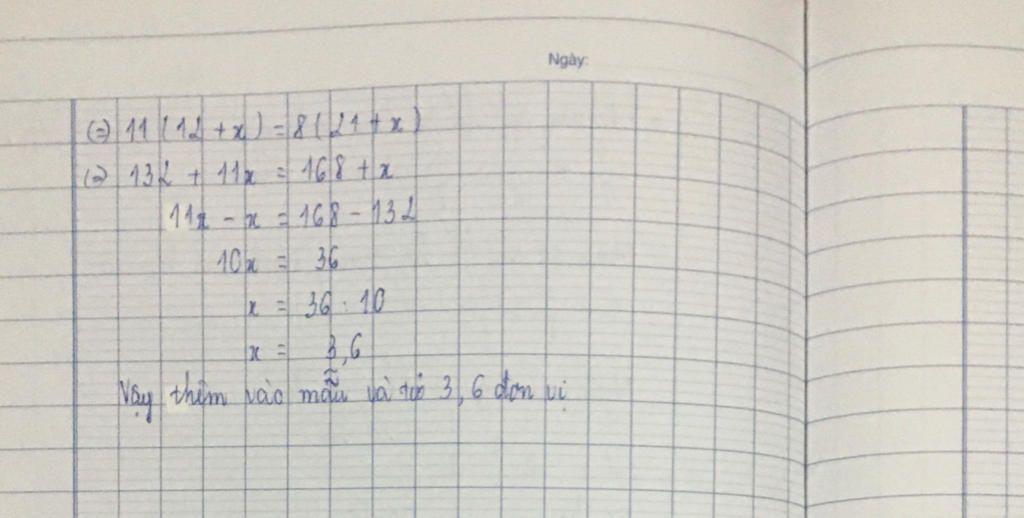 Ngày:
(=) 11 (12 + x) = 8 (21 + x)
(=) 132 + 11x = 168 + x
11x - x = 168 - 132
10x = 36
x = 36 : 10
x = 3,6
Vậy thêm vào mẫu và tử 3,6 đơn vị